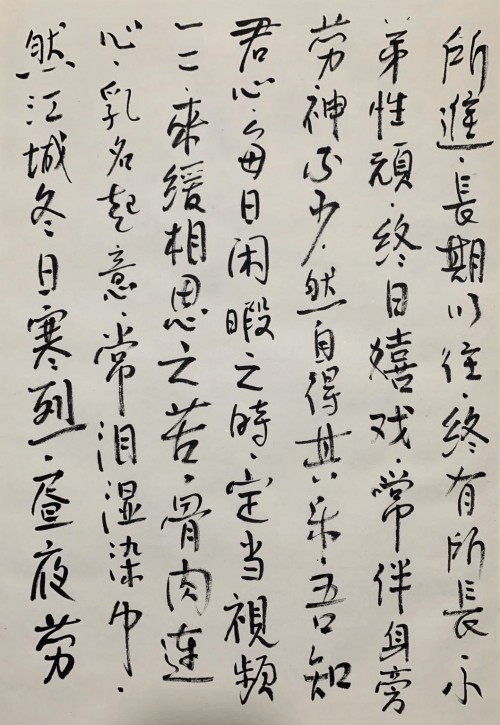 所進，長期以往，終有所長，小
弟性頑，終日嬉戏，常伴身旁
劳神不少，然自得其乐，吾知
君心，每日闲暇之時，定当視频
一二，来缓相思之苦，骨肉连
心，乳名起意，常泪湿染巾，
然江城冬日寒烈，昼夜劳